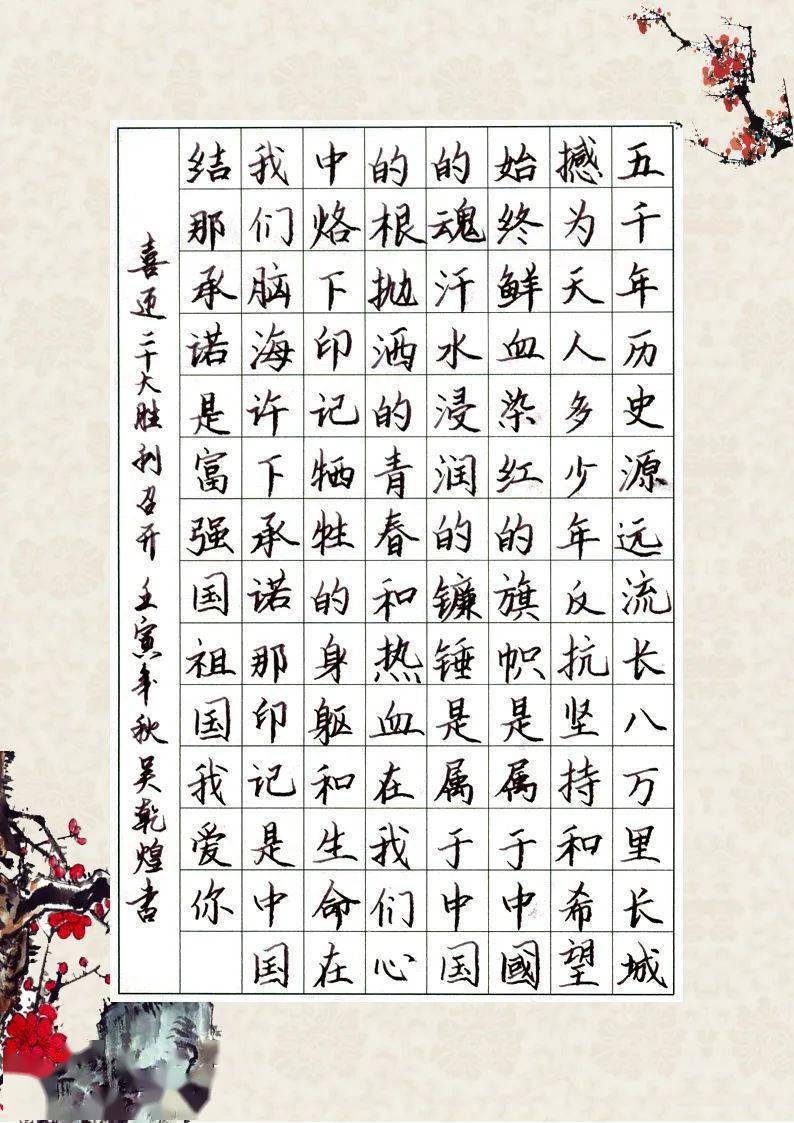 五千年历史源远流长八万里长城
撼为天人多少年反抗坚持和希望
始终鲜血染红的旗帜是属于中國
的魂汗水浸润的镰锤是属于中国
的根抛洒的青春和热血在我们心
中烙下印记牺牲的身躯和生命在
我们脑海许下承诺那印记是中国
结那承诺是富强国祖国我爱你
喜迎二十大胜利召开 壬寅年秋 吴乾煌书